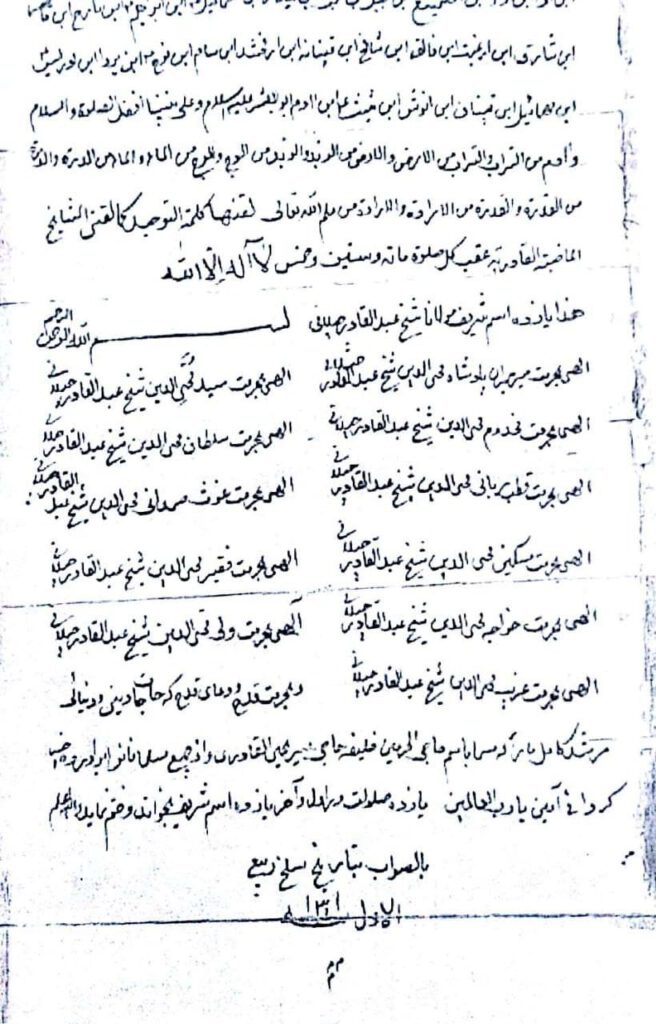 ابن شارق ابن ارغوت ابن فالغ ابن شالخ ابن قينان ابن ارفخشد ابن سام ابن نوح ابن
ابن مهائيل ابن قينان ابن انوش ابن شيث ابن ادم ابو البشر عليه السلام وعلى نبينا افضل الصلوة والسلام
وادم من التراب والتراب من الارض والارض من الزبد والزبد من الموج والموج من الماء والماء من الدرة والدرة
من القدرة والقدرة من الارادة والارادة من علم الله تعالى لقنتها كلمة التوحيد كما لقننى المشايخ
الماضية القادرية عقب كل صلوة مائة وستين وخمس لا اله الا الله
هذا يازده اسم شريف مولانا شيخ عبد القادر جيلانى
بسم الله الرحمن الرحيم
الهى بحرمت مير ميران پادشاه محى الدين شيخ عبد القادر جيلانى الهى بحرمت سيد محى الدين شيخ عبد القادر جيلانى
الهى بحرمت مخدوم محى الدين شيخ عبد القادر جيلانى الهى بحرمت سلطان محى الدين شيخ عبد القادر جيلانى
الهى بحرمت قطب ربانى محى الدين شيخ عبد القادر جيلانى الهى بحرمت غوث صمدانى محى الدين شيخ عبد القادر جيلانى
الهى بحرمت مسكين محى الدين شيخ عبد القادر جيلانى الهى بحرمت فقير محى الدين شيخ عبد القادر جيلانى
الهى بحرمت خواجه محى الدين شيخ عبد القادر جيلانى الهى بحرمت ولى محى الدين شيخ عبد القادر جيلانى
الهى بحرمت غريب محى الدين شيخ عبد القادر جيلانى وبحرمت ودعاى كه حاجات دينى ودنيائى
مرشد كامل باسم حاجى الحرمين خليفه حاجى القادرى واز جميع مسلمانان
گردانى آمين يا رب العالمين يازده صلوات در اول وآخر يازده اسم شريف بخواند وختم نمايد والله اعلم
بالصواب بتاريخ سلخ ربيع
الاول